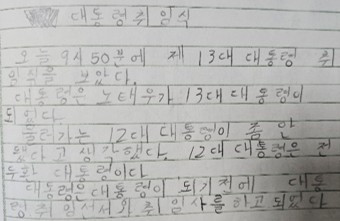 대통령취임식
오늘 9시 50분에 제 13대 대통령 취
임식을 보았다.
대통령은 노태우가 13대 대통령이
되었다.
12대 대통령이 좀 안
됐다고 생각했다. 12대 대통령은 전
두환 대통령이다
대통령은 대통령이 되기전에 대통
령취임서서와 취임사를하고되었다